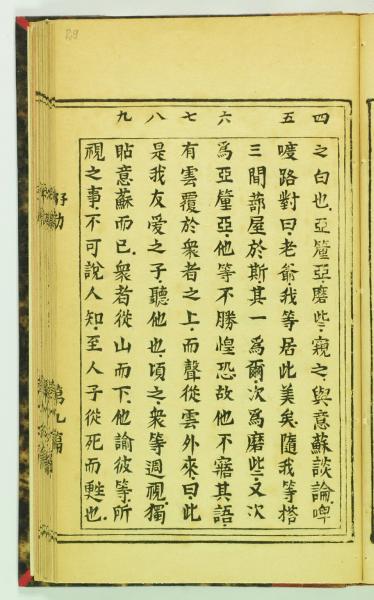 四 之白也.亞釐亞.磨些.窺之.與意蘇談論.啤
五 嘜路對曰.老爺.我等居此美矣.隨我等搭
三間蔀屋於斯其一爲爾.次爲磨些.又次
六 爲亞釐亞.他等不勝惶恐故他不寤其語.
七 有雲覆於衆者之上.而聲從雲外來.曰.此
八 是我友愛之子.聽他也.頃之.衆等週視.獨
九 貼意蘇而已.衆者從山而下.他諭彼等.所
視之事.不可說人知.至人子從死而甦也.
第九篇